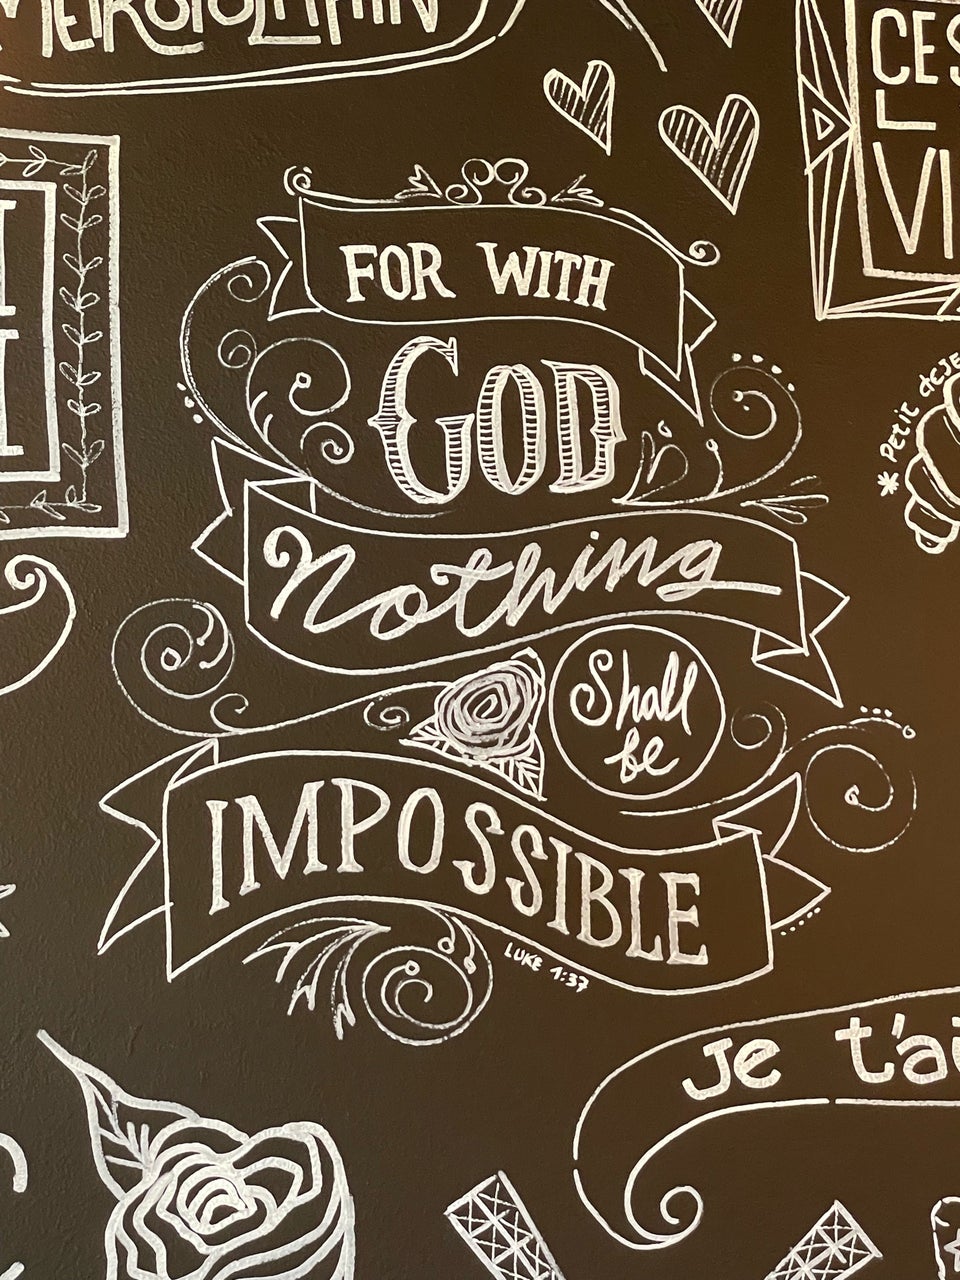 METROPOLITAIN
CES
L
VI
FOR WITH
GOD
Nothing
Shall
be
IMPOSSIBLE
LUKE 1:37
* Petit deJE
Je t'ai